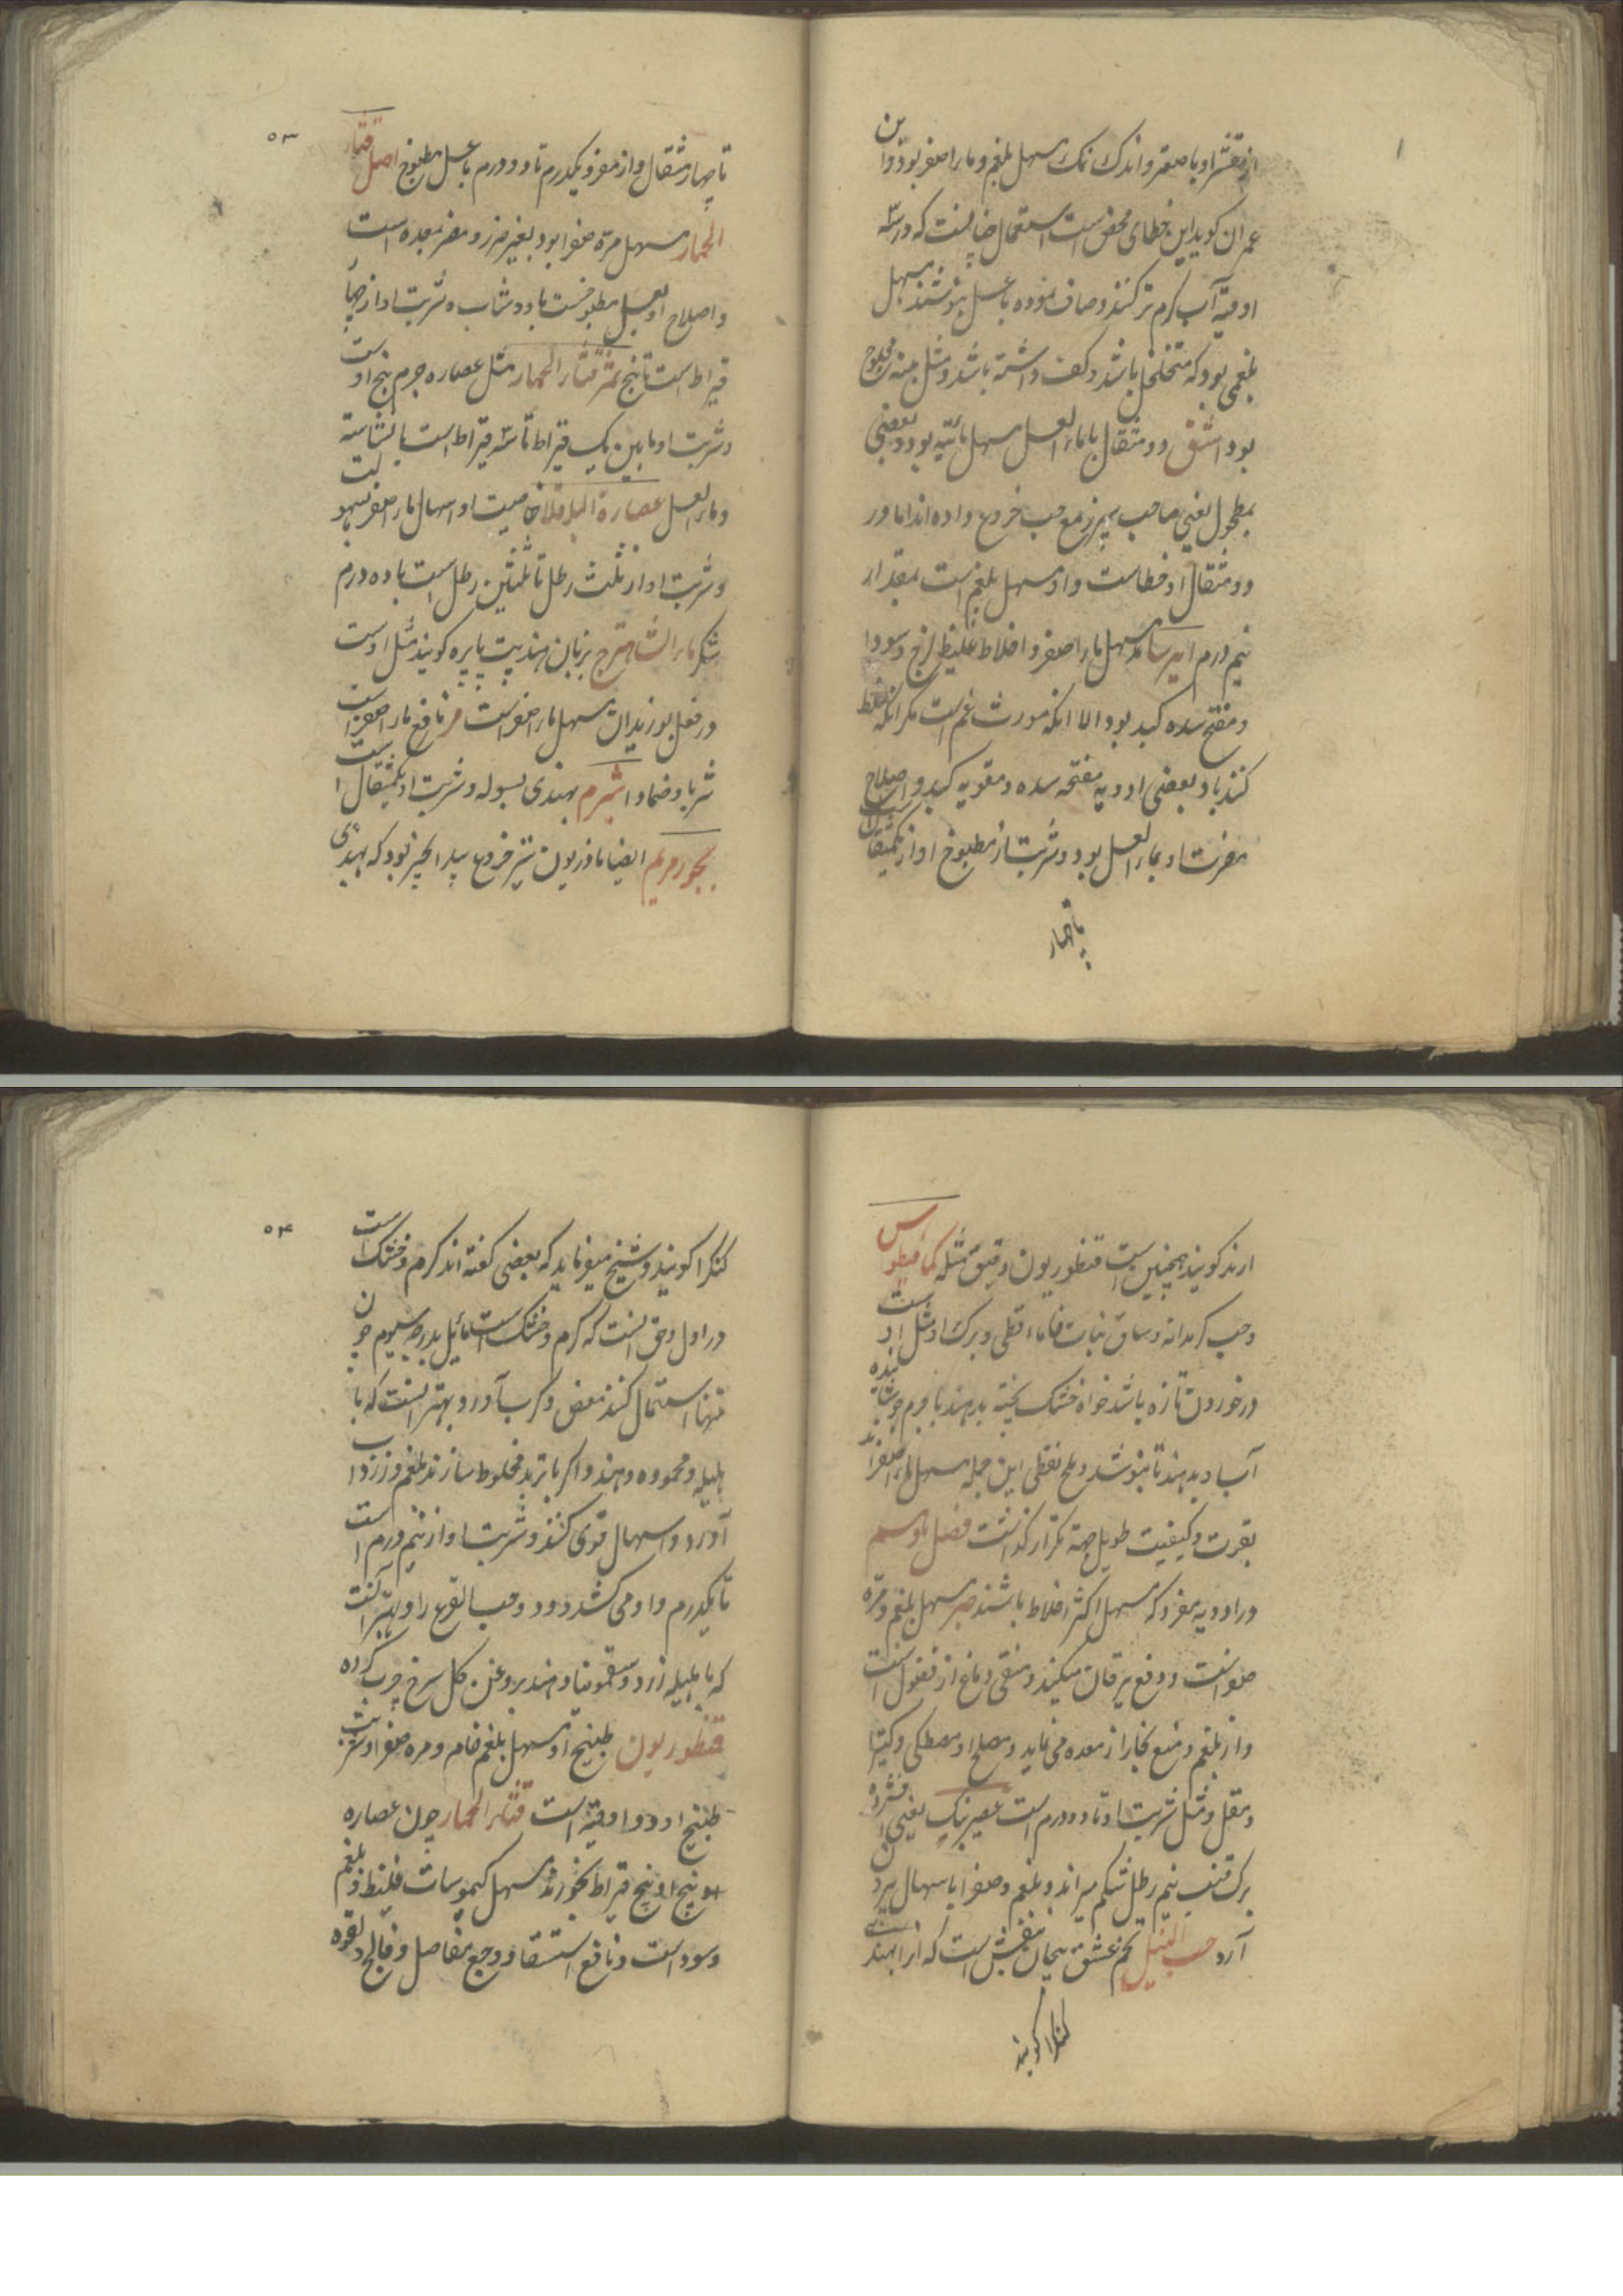 از قشر او با صعتر و اندک نمک مسهل بلغم و ماء اصفر بود و ابن
عمران گوید این خطای محض است استعمال چنانست که در سه
اوقیه آب گرم تر کنند و صاف نموده با عسل بنوشند مسهل
بلغمی بود که متخلخل باشد و کف داشته باشد و مثل پنبه محلوج
بود اشق دو مثقال با ماء العسل مسهل مائیه بود و بعضی
بمطحول یعنی صاحب سپرز مع حب خروع داده اند اما در
دو مثقال او خطاست و او مسهل بلغم است بمقدار
نیم درم ایرسا مسهل ماء اصفر و اخلاط غلیظ لزج و سودا
و مفتح سده کبد بود الا انکه مورث غم است مگر انکه خلط
کنند باو بعضی ادویه مفتحه سده و مقویه کبد و اصلاح
مضرت او بماء العسل بود و شربت از مطبوخ او از یکمثقال است
تا چهار
۵۳
تا چهار مثقال و از مفرد یکدرم تا دو درم با عسل مطبوخ اصل قثاء
الحمار مسهل مره صفرا بود بغیر ضرر و مضر بمعده است
و اصلاح او بعسل مطبوخست یا دوشاب و شربت او از چهار
قیراط است تا پنج ثمر قثاء الحمار مثل عصاره جرم بیخ اوست
و شربت او مابین یک قیراط تا سه قیراط است با نشاسته
و ماء العسل عصارة البلاقلا خاصیت او اسهال ماء اصفر بسهولت
و شربت او از ثلث رطل تا ثلثین رطل است با ده درم
شکر ماء الشاهترج بزبان هند پت پاپره گویند مثل اوست
در فعل بوزیدان مسهل ماء اصفر است مر نافع ماء اصفر است
شربا و ضمادا شبرم بهندی بسوله و شربت او یکمثقال است
بخور مریم ایضا ماذریون شیر خروع بید انجیر بود که بهندی
ارند گویند همچنین است قنطوریون دقیق مثله کمافیطوس
و حب کرمدانه و ساق نبات فاما اقطی و برک او مثل اوست
در خوردن تازه باشد خواه خشک پخته بدهند یا جرم جوشانیده
آب او بدهند تا بنوشد و ملح نفطی این جمله مسهل ماء اصفر اند
بقوت و کیفیت طویل جهة تکرار گذاشت فصل نوسم
در ادویه مفرد که مسهل اکثر اخلاط باشند صبر مسهل بلغم و مره
صفراست و دفع یرقان میکند و منقی دماغ از فضول است
و از بلغم و منع بخار از معده می نماید و مصلح او مصطکی و کتیرا
و مقل و مثل شربت او تا دو درم است عصیر بنک یعنی افشرده
برک قنب نیم رطل شکم میراند و بلغم و صفرا باسهال بیرون
آرد حب النیل تخم عشق پیچان بنفش است که انرا بهندی
کنکرا گویند
۵۴
کنکرا گویند و شیخ میفرماید که بعضی گفته اند گرم و خشک است
در اول و حق انست که گرم و خشک است مائل بدرجه سیوم چون
تنها استعمال کنند مغص و کرب آورد و بهتر انست که با
هلیله و محموده دهند و اگر با تربد مخلوط سازند بلغم و زرداب
آورد و اسهال قوی کند و شربت او از نیم درم است
تا یکدرم و او می کشد دود و حب القرع را و بهتر انست
که با هلیله زرد و سقمونیا دهند بروغن گل سرخ چرب کرده
قنطوریون طبیخ او مسهل بلغم خام و مره صفرا و شربت
طبیخ او دو اوقیه است قثاء الحمار چون عصاره
او بیخ او پنج قیراط بخورند مسهل کیموسات غلیظ و بلغم
و سود است و نافع استسقا و وجع مفاصل و فالج و لقوه